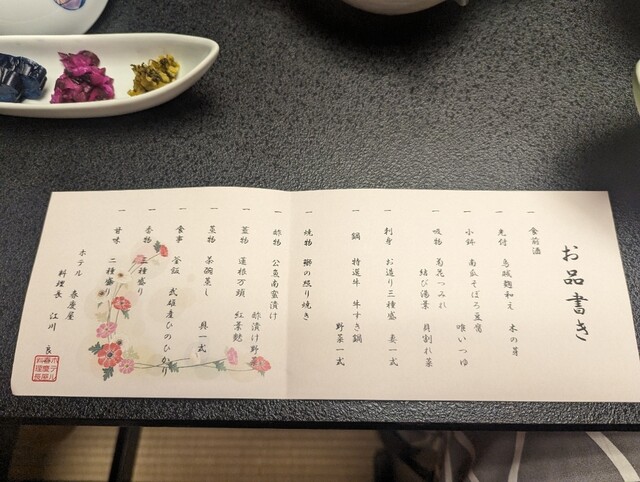 お品書き
一 食前酒
一 先付 烏賊麹和え 木の芽
一 小鉢 南瓜そぼろ豆腐 旨いつゆ
一 吸物 菊花つみれ
結び湯葉 貝割れ菜
一 刺身 お造り三種盛 妻一式
一 鍋 特選牛 牛すき鍋
野菜一式
一 焼物 鰤の照り焼き
一 酢物 公魚南蛮漬け
酢漬け野菜
一 蓋物 蓮根万頭 紅葉麩
一 蒸物 茶碗蒸し 具一式
一 食事 釜飯 武雄産ひのひかり
一 香物 二種盛り
一 甘味 二種盛り
ホテル 春慶屋
料理長 江川 良